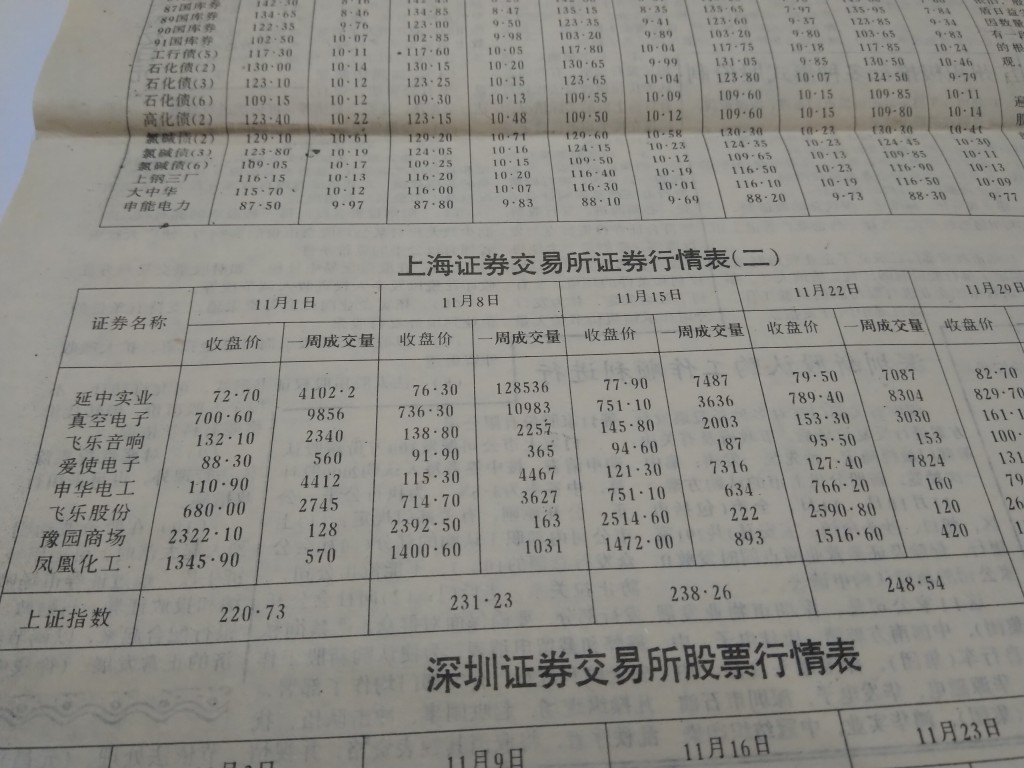 87国库券 142·30 8·16
89国库券 134·65 8·46 134·85 8·47 135·15 8·35
90国库券 122·35 9·76 123·00 9·50 123·35 9·41 123·60 9·37 123·85 9·34
91国库券 102·50 10·07 102·85 9·98 103·20 9·89 103·20 9·80 103·65 9·83
工行债(5) 117·30 10·11 117·60 10·05 117·80 10·04 117·75 10·18 117·85 10·24
石化债(2) 130·00 10·14 130·15 10·20 130·65 9·99 131·05 9·85 130·50 10·46
石化债(3) 123·10 10·12 123·25 10·15 123·65 10·04 123·80 10·07 124·50 9·79
石化债(6) 109·15 10·12 109·30 10·13 109·55 10·09 109·60 10·15 109·85 10·11
高化债(2) 123·40 10·22 123·15 10·48 109·50 10·12 109·60 10·15 109·80 10·14
氯碱债(2) 129·10 10·61 129·20 10·71 129·60 10·58 130·30 10·23 130·30 10·41
氯碱债(3) 123·80 10·19 124·05 10·16 124·15 10·23 124·35 10·23 124·45 10·30
氯碱债(6) 109·05 10·17 109·25 10·15 109·50 10·12 109·65 10·13 109·85 10·11
上钢三厂 116·15 10·13 116·20 10·20 116·40 10·19 116·50 10·23 116·90 10·13
大中华 115·70 10·12 116·00 10·07 116·30 10·01 116·10 10·19 116·50 10·09
申能电力 87·50 9·97 87·80 9·83 88·10 9·69 88·20 9·73 88·30 9·77
上海证券交易所证券行情表(二)
证券名称 11月1日 11月8日 11月15日 11月22日 11月29日
收盘价 一周成交量 收盘价 一周成交量 收盘价 一周成交量 收盘价 一周成交量 收盘价
延中实业 72·70 4102·2 76·30 128536 77·90 7487 79·50 7087 82·70
真空电子 700·60 9856 736·30 10983 751·10 3636 789·40 8304 829·70
飞乐音响 132·10 2340 138·80 2257 145·80 2003 153·30 3030 161·1
爱使电子 88·30 560 91·90 365 94·60 187 95·50 153 100·
申华电工 110·90 4412 115·30 4467 121·30 7316 127·40 7824 131
飞乐股份 680·00 2745 714·70 3627 751·10 634 766·20 160 79
豫园商场 2322·10 128 2392·50 163 2514·60 222 2590·80 120 26
凤凰化工 1345·90 570 1400·60 1031 1472·00 893 1516·60 420 1
上证指数 220·73 231·23 238·26 248·54
深圳证券交易所股票行情表
11月9日 11月16日 11月23日